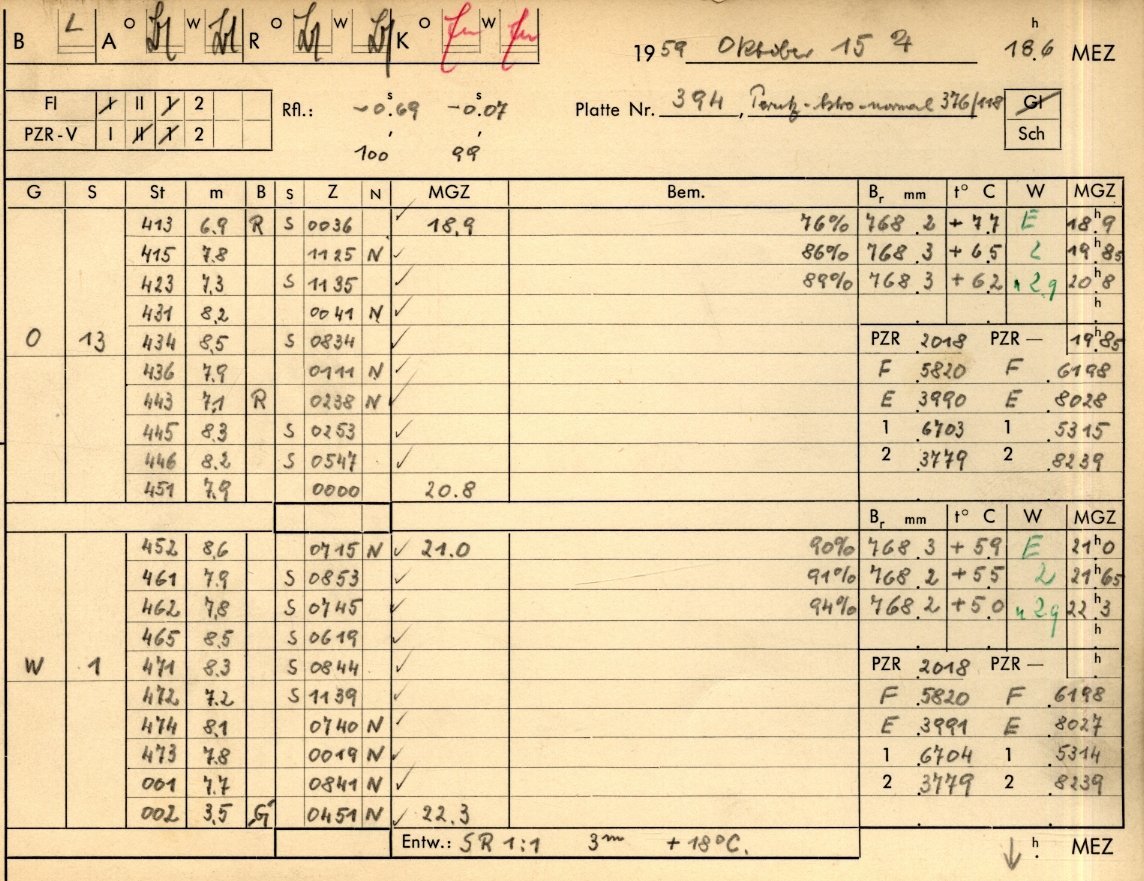 B L A O W R O W K O W 1959 Oktober 15 18.6 h MEZ
FI I II 1 2 Rfl.: -0.69 s -0.07 s Platte Nr. 394, Perutz-Astro-normal 376/118 Gl
PZR-V I II 1 2 100 99 Sch
G S St m B S Z N MGZ Bem. Br mm t° C W MGZ
413 6.9 R S 0036 ✓ 18.9 76% 768.2 +7.7 E 18h.9
415 7.8 1125 N ✓ 86% 768.3 +6.5 2 19h.85
423 7.3 S 1135 ✓ 89% 768.3 +6.2 n 2.g 20h.8
431 8.2 0041 N ✓ h
O 13 434 8.5 S 0834 ✓ PZR 2018 PZR — 19h.85
436 7.9 0111 N ✓ F .5820 F .6198
443 7.1 R 0238 N ✓ E .3990 E .8028
445 8.3 S 0253 ✓ 1 .6703 1 .5315
446 8.2 S 0547 ✓ 2 .3779 2 .8239
451 7.9 0000 20.8
Br mm t° C W MGZ
452 8.6 0715 N ✓ 21.0 90% 768.3 +5.9 E 21h.0
461 7.9 S 0853 ✓ 91% 768.2 +5.5 2 21h.65
462 7.8 S 0745 ✓ 94% 768.2 +5.0 n 2.g 22h.3
465 8.5 S 0619 ✓ h
W 1 471 8.3 S 0844 ✓ PZR 2018 PZR — h
472 7.2 S 1139 ✓ F .5820 F .6198
474 8.1 0740 N ✓ E .3991 E .8027
473 7.8 0019 N ✓ 1 .6704 1 .5314
001 7.7 0841 N ✓ 2 .3779 2 .8239
002 3.5 G 0451 N ✓ 22.3
Entw.: SR 1:1 3m +18°C. ↓ h MEZ